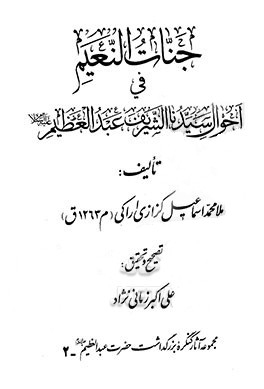 جنّات النّعیم
فی
احوال سیّدنا الشریف عبدالعظیم علیه‌السلام
تألیف:
ملا محمد اسماعیل کزازی اراکی (م ۱۲۶۳ ق)
تصحیح و تحقیق:
علی اکبر زمانی نژاد
مجموعه آثار کنگره بزرگداشت حضرت عبدالعظیم علیه‌السلام - ۲